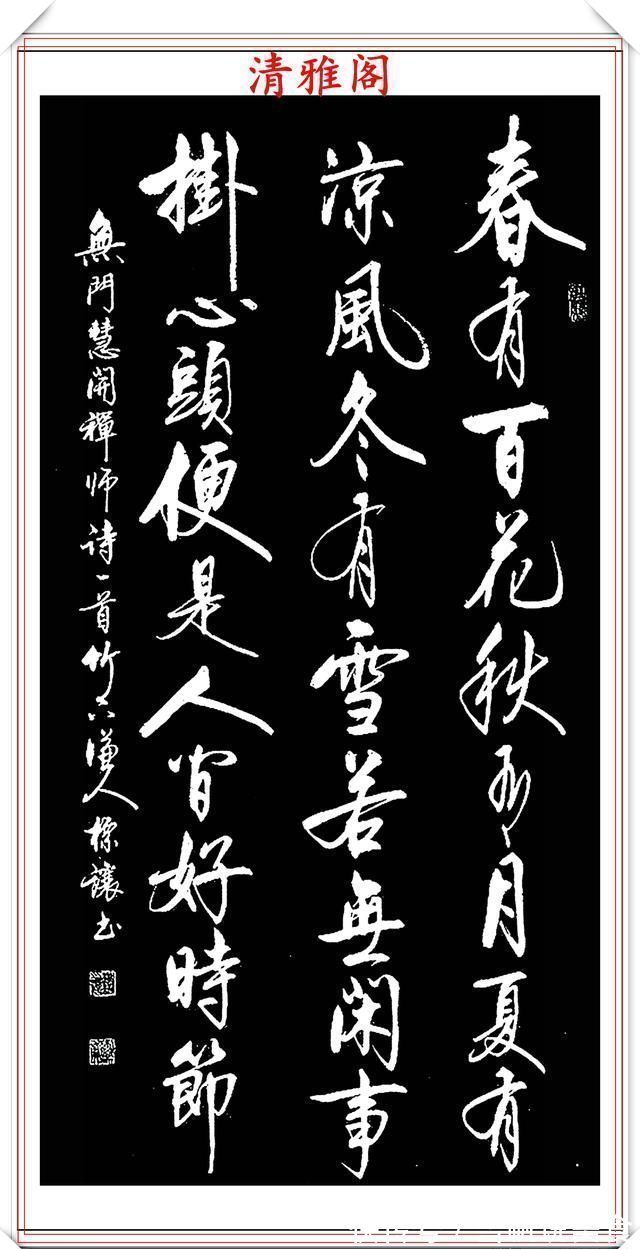 清雅阁
春有百花秋有月夏有
凉風冬有雪若無闲事
掛心頭便是人间好時節
無門慧開禪师诗一首竹六漢人標讓书